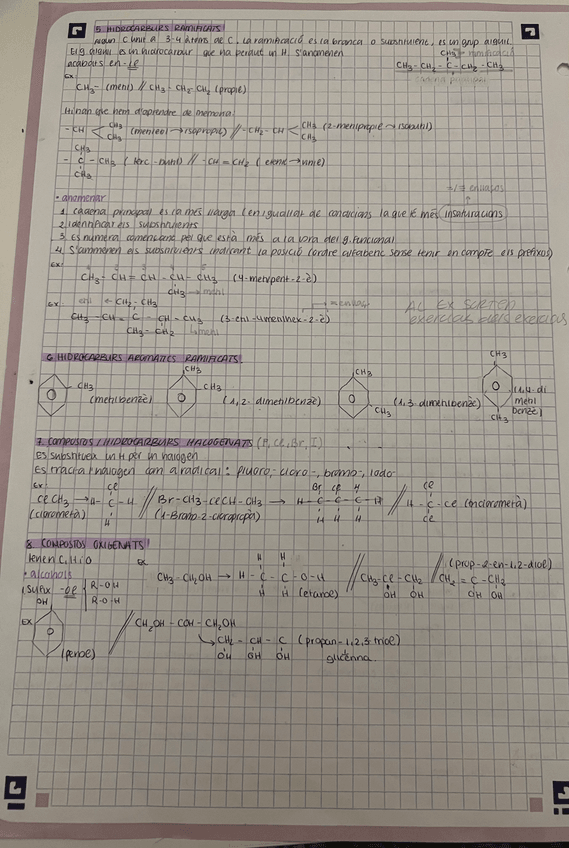 5 HIDROCARBURS RAMIFICATS
Algun C unit a 3-4 àtoms de C. La ramificació és la branca o substituent, és un grup alquil.
El g. alquil és un hidrocarbur que ha perdut un H. S'anomenen
acabats en -il
CH3 → ramificació
CH3-CH2-C-CH2-CH3
cadena principal
Ex
CH3- (metil) // CH3-CH2-CH2 (propil)
Hi han que hem d'aprendre de memoria:
-CH < CH3 CH3 (metiletil → isopropil) // -CH2-CH < CH3 CH3 (2-metilpropil → isobutil)
CH3
-C-CH3 (terc-butil) // -CH=CH2 (etenil → vinil)
CH3
=/≡ enllaços
• anomenar
1 cadena principal és la més llarga (en igualtat de condicions la que té més insaturacions)
2 identificar els substituents
3 Es numera començant pel que està més a la vora del g. funcional
4 S'anomenen els substituents indicant la posició (ordre alfabètic sense tenir en compte els prefixos)
Ex:
CH3-CH=CH-CH-CH3 (4-metilpent-2-è)
CH3 → metil
Ex:
etil ← CH2-CH3
CH3-CH=C-CH-CH3 (3-etil-4metilhex-2-è)
CH3-CH2 metil
AL EX SURTEN
exercicis dels exercicis
6 HIDROCARBURS AROMÀTICS RAMIFICATS:
CH3
(metilbenzè)
CH3
CH3
(1,2-dimetilbenzè)
CH3
CH3
(1,3-dimetilbenzè)
CH3
CH3
(1,4-di
metil
benzè)
7. COMPOSTOS / HIDROCARBURS HALOGENATS (F, Cl, Br, I)
Es substitueix un H per un halogen
Es tracta l'halogen com a radical: fluoro-, cloro-, bromo-, iodo-
Ex:
Cl
ClCH3 → H-C-H
H
(clorometà)
Br-CH3-ClCH-CH3 →
Br Cl H
H-C-C-C-H
H H H
(1-Bromo-2-cloropropà)
Cl
H-C-Cl (triclorometà)
Cl
8 COMPOSTOS OXIGENATS
tenen C, H i O
• alcohols
(sufix -ol { R-OH
R-O-H
Ex
CH3-CH2OH →
H H
H-C-C-O-H
H H (etanol)
CH3-CH-CH2
OH OH
(prop-2-en-1,2-diol)
CH2=C-CH2
OH OH
EX
OH
(fenol)
CH2OH-COH-CH2OH
CH2-CH-C (propan-1,2,3-triol)
OH OH OH glicerina